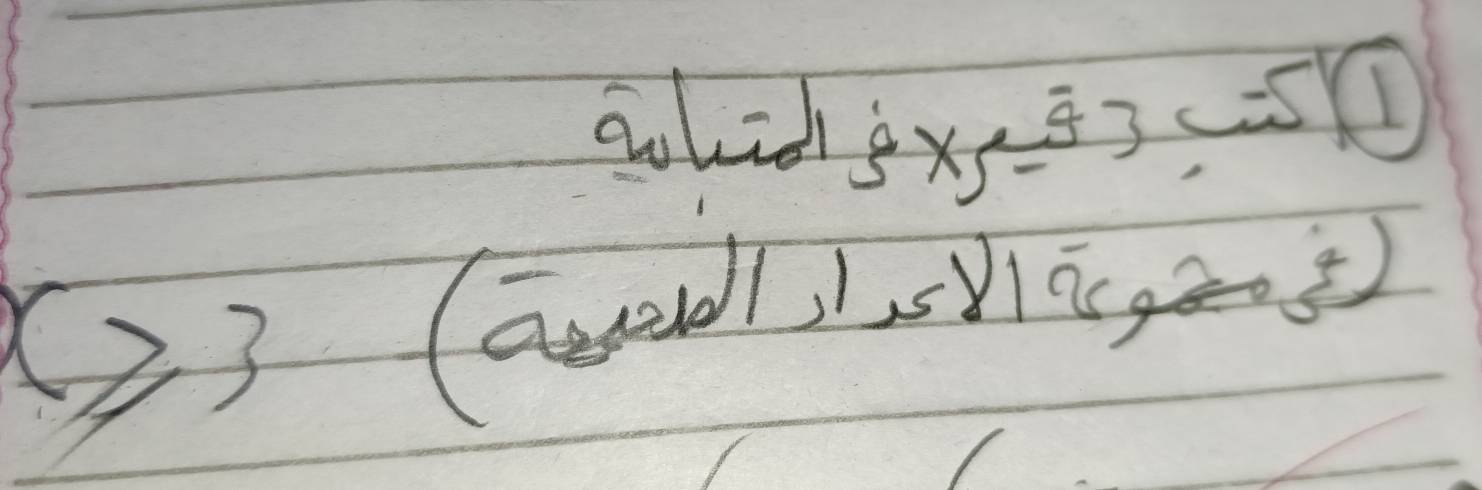 ① اكتب 3 قيم x في المتباينة
(في مجموعة الاعداد الصحيحة) x ⩾ 3